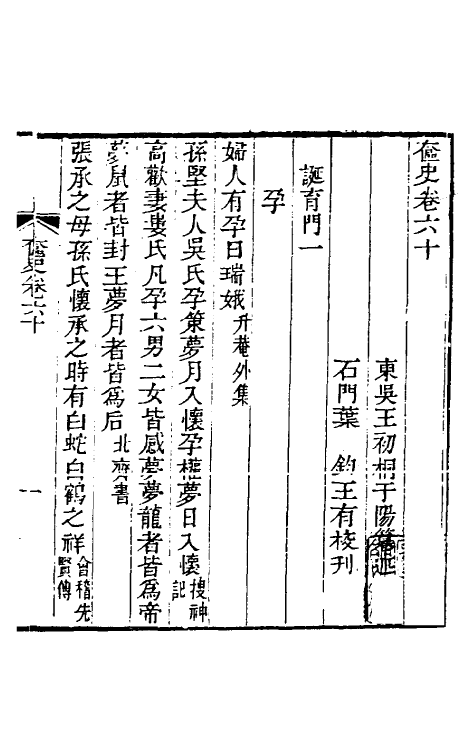 奩史卷六十
東吳王初桐于陽纂述
石門葉　鈞王有棱刋
誕育門一
孕
婦人有孕曰瑞娥升菴外集
孫堅夫人吳氏孕策夢月入懷孕權夢日入懷搜神記
高歡妻婁氏凡孕六男二女皆感夢夢龍者皆爲帝
夢鼠者皆封王夢月者皆爲后北齊書
張承之母孫氏懷承之時有白蛇白鶴之祥會稽先賢傳
奩史卷六十
一